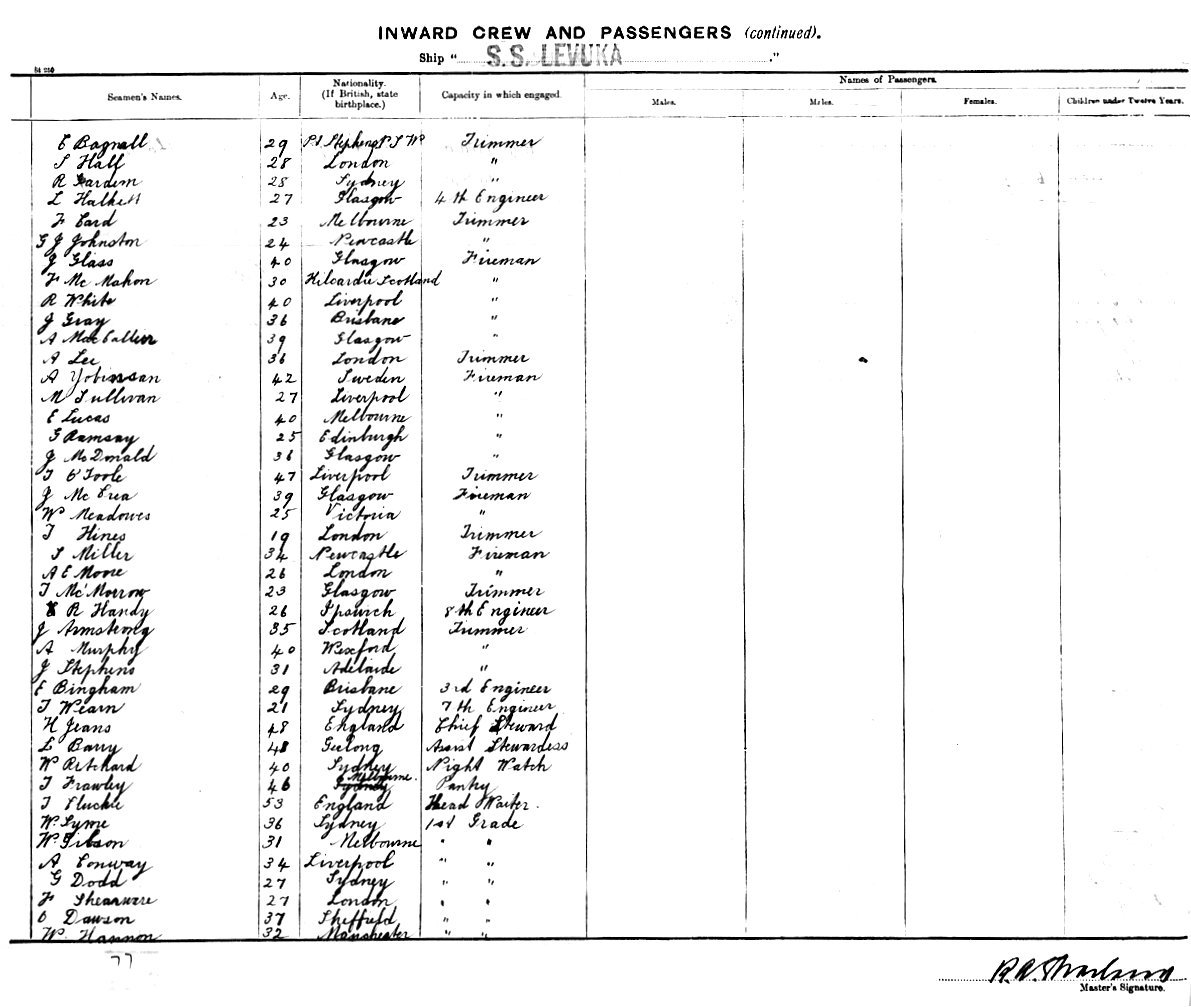 INWARD CREW AND PASSENGERS (continued).
Ship " S.S. LEVUKA "
Names of Passengers.
Seamen's Names. Age. Nationality. (If British, state birthplace.) Capacity in which engaged. Males. Males. Females. Children under Twelve Years.
E Bagnall 29 Pt Stephens Trimmer
S Hall 28 London "
R 28 Sydney "
L Halkett 27 Glasgow 4th Engineer
F Card 23 Melbourne Trimmer
G J Johnston 24 Newcastle "
J Glass 40 Glasgow Fireman
F McMahon 30 Scotland "
R White 40 Liverpool "
J Gray 36 Brisbane "
A 39 Glasgow "
A Lee 36 London Trimmer
A 42 Sweden Fireman
M Sullivan 27 Liverpool "
E Lucas 40 Melbourne "
G Ramsay 25 Edinburgh "
J McDonald 36 Glasgow "
T O'Toole 47 Liverpool Trimmer
J McCrea 39 Glasgow Fireman
W Meadowes 25 Victoria "
T Hines 19 London Trimmer
S Miller 34 Newcastle Fireman
A E Moore 26 London "
T McMorrow 23 Glasgow Trimmer
R Handy 26 Ipswich 8th Engineer
J Armstrong 35 Scotland Trimmer
A Murphy 40 Wexford "
J Stephens 31 Adelaide "
E Bingham 29 Brisbane 3rd Engineer
T Wearn 21 Sydney 7th Engineer
H Jeans 48 England Chief Steward
L Barry 48 Geelong Assist Stewardess
W Pritchard 40 Sydney Night Watch
T Frawley 46 Sydney Melbourne. Pantry
T 53 England Head Waiter.
W. Syme 36 Sydney 1st Grade
W. Gibson 31 Melbourne " "
A Conway 34 Liverpool " "
G Dodd 27 Sydney " "
F 27 London " "
O Dawson 37 Sheffield " "
W. Hannon 32 Manchester " "
77
Master's Signature.